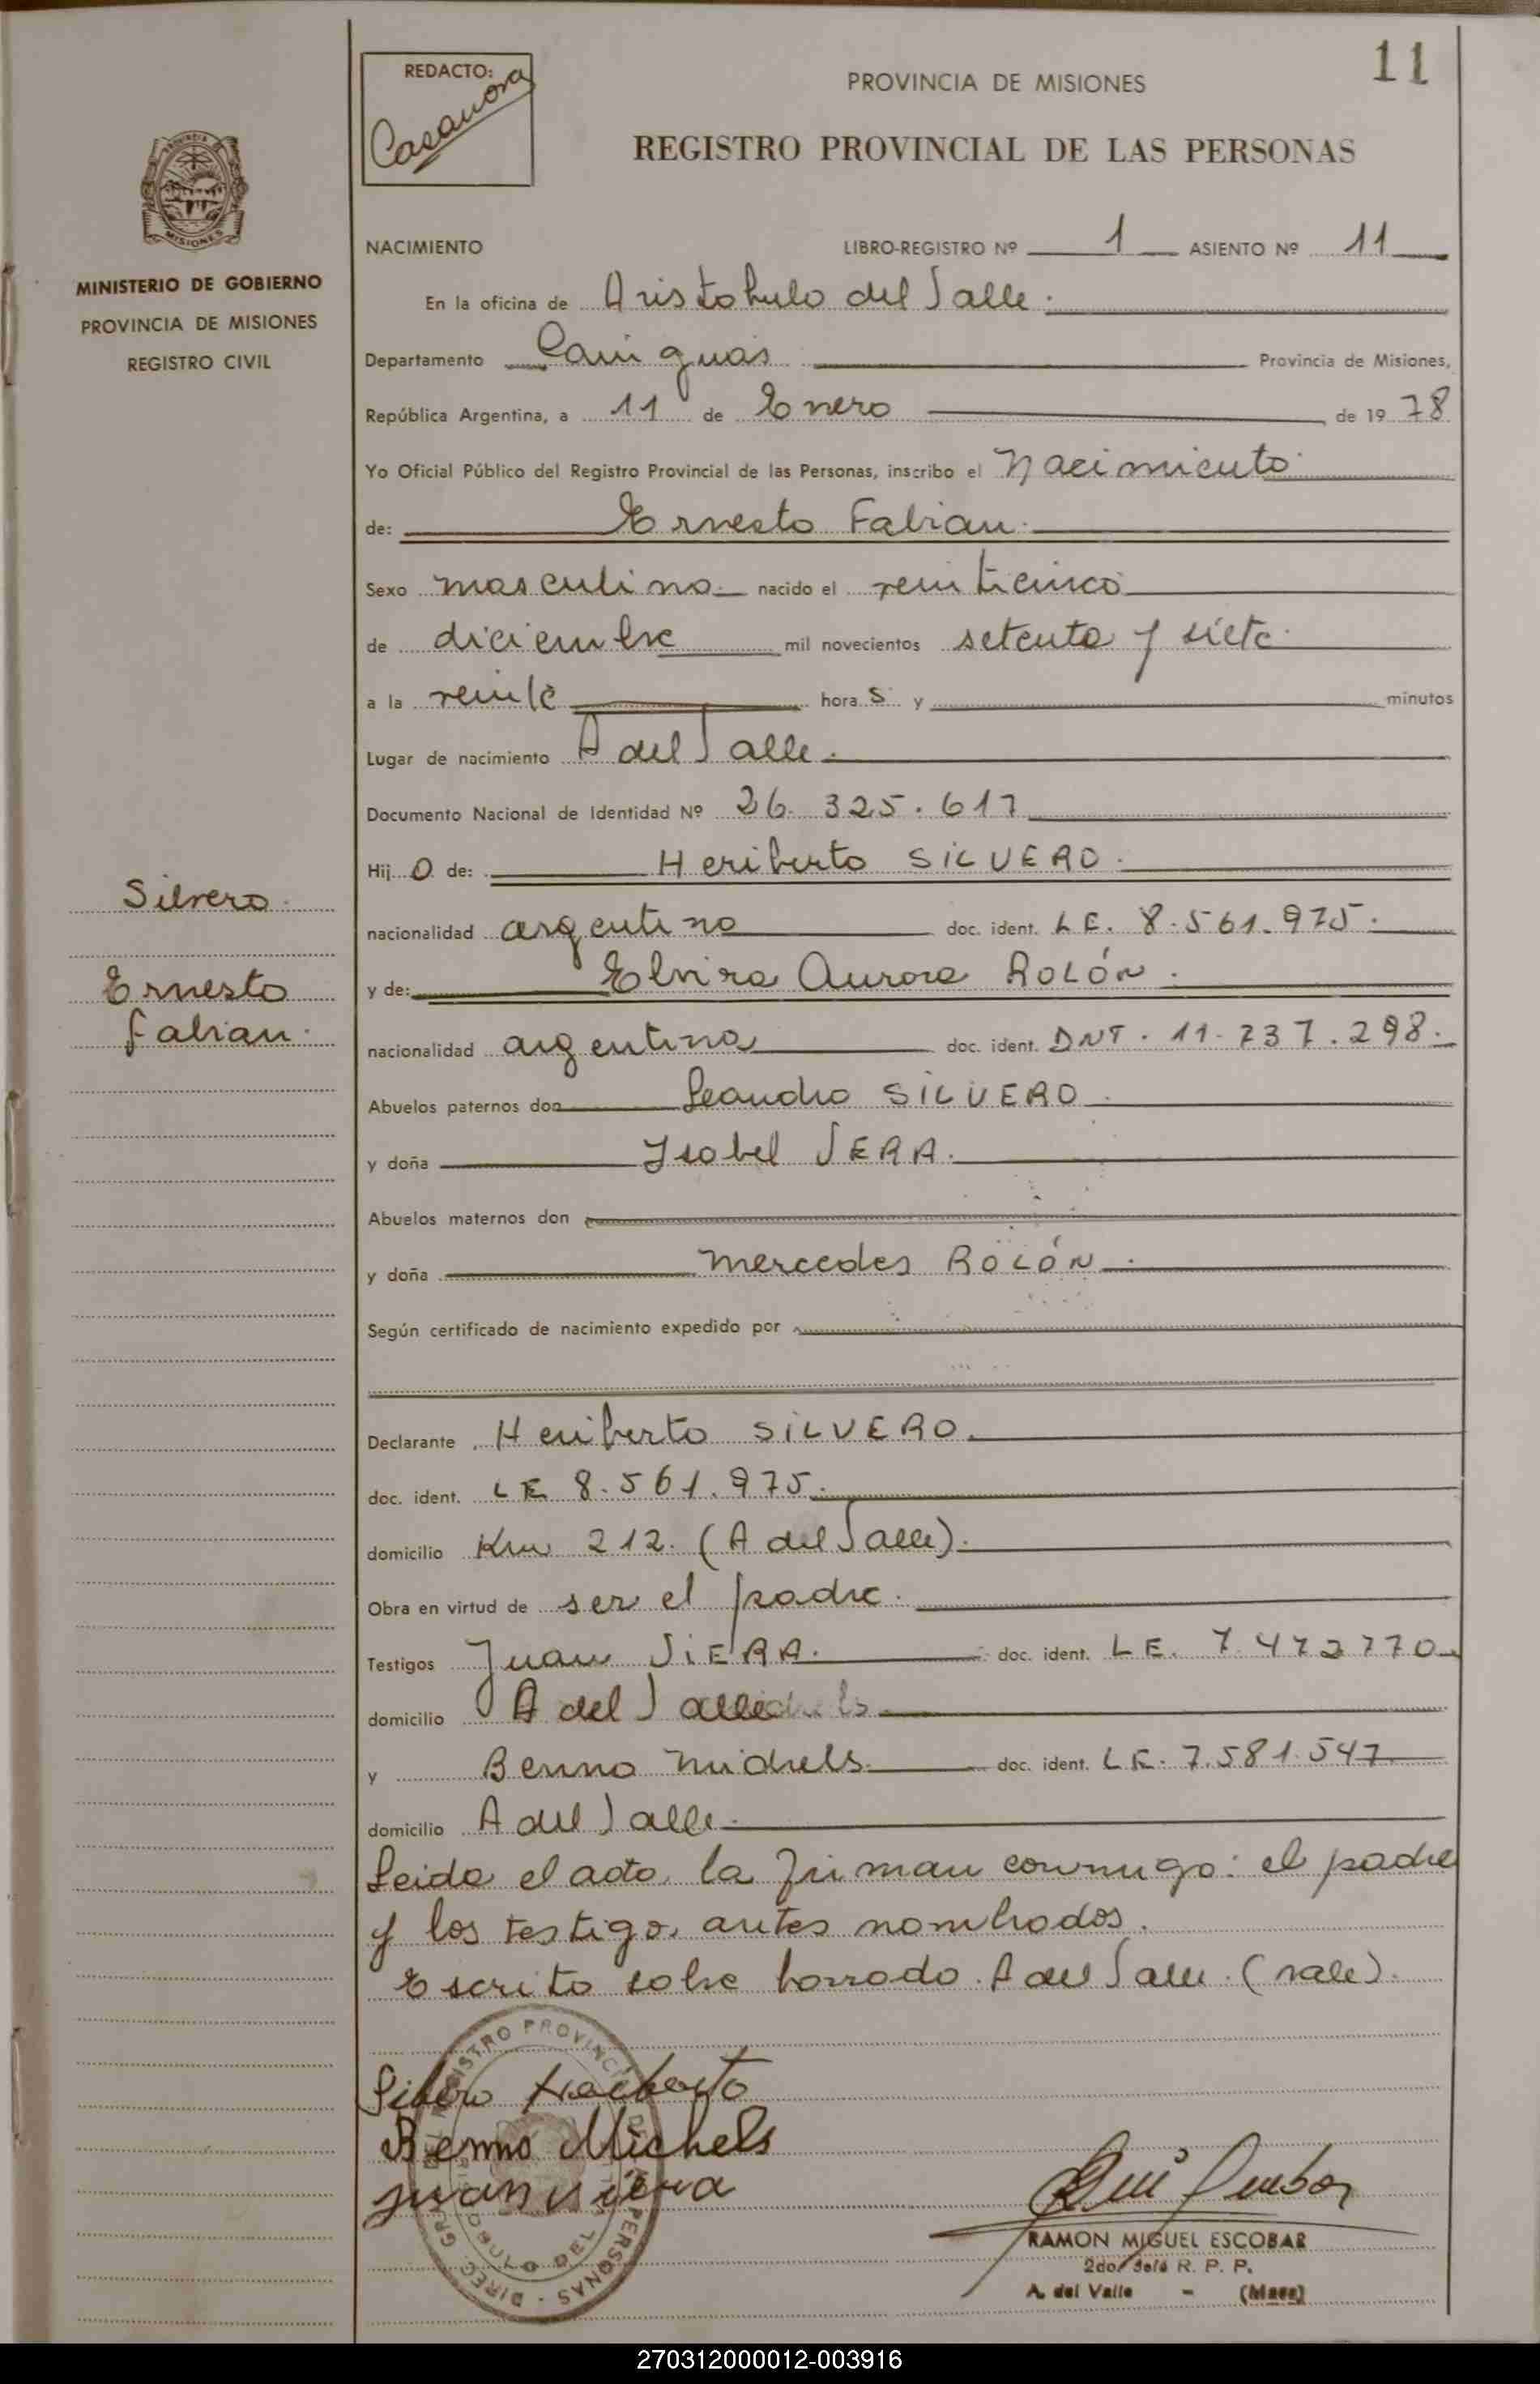 11
REDACTO:
Casanova
PROVINCIA DE MISIONES
REGISTRO PROVINCIAL DE LAS PERSONAS
MISIONES
MINISTERIO DE GOBIERNO
PROVINCIA DE MISIONES
REGISTRO CIVIL
NACIMIENTO LIBRO-REGISTRO Nº 1 ASIENTO Nº 11
En la oficina de Aristobulo del Valle.
Departamento Cainguas Provincia de Misiones,
República Argentina, a 11 de Enero de 19 78
Yo Oficial Público del Registro Provincial de las Personas, inscribo el Nacimiento
de: Ernesto Fabian.
Sexo masculino. nacido el veinticinco
de diciembre mil novecientos setenta y siete.
a la veinte hora s y minutos
Lugar de nacimiento A del Valle.
Documento Nacional de Identidad Nº 26.325.617
Hij o de: Heriberto SILVERO.
Silvero.
nacionalidad argentino doc. ident. LE. 8.561.975.
Ernesto
y de: Elvira Aurora ROLÓN.
Fabian.
nacionalidad argentina doc. ident. DNI. 11.737.298.
Abuelos paternos don Leandro SILVERO.
y doña Ysabel VERA.
Abuelos maternos don
y doña Mercedes ROLÓN.
Según certificado de nacimiento expedido por
Declarante Heriberto SILVERO.
doc. ident. LE 8.561.975.
domicilio Km 212. (A del Valle).
Obra en virtud de ser el padre.
Testigos Juan VIERA. doc. ident. LE. 7.472770
domicilio A del Valle
y Benno Michels. doc. ident. LE. 7.581.547
domicilio A del Valle.
Leida el acta, la firman conmigo: el padre
y los testigos antes nombrados.
Escrito sobre borrado. A del Valle. (vale).
REGISTRO PROVINCIAL PERSONAS - DIREC
Silvero Heriberto
Benno Michels
juan viera
RAMON MIGUEL ESCOBAR
2do. Jefe R. P. P.
A. del Valle - (Mnes)
270312000012-003916